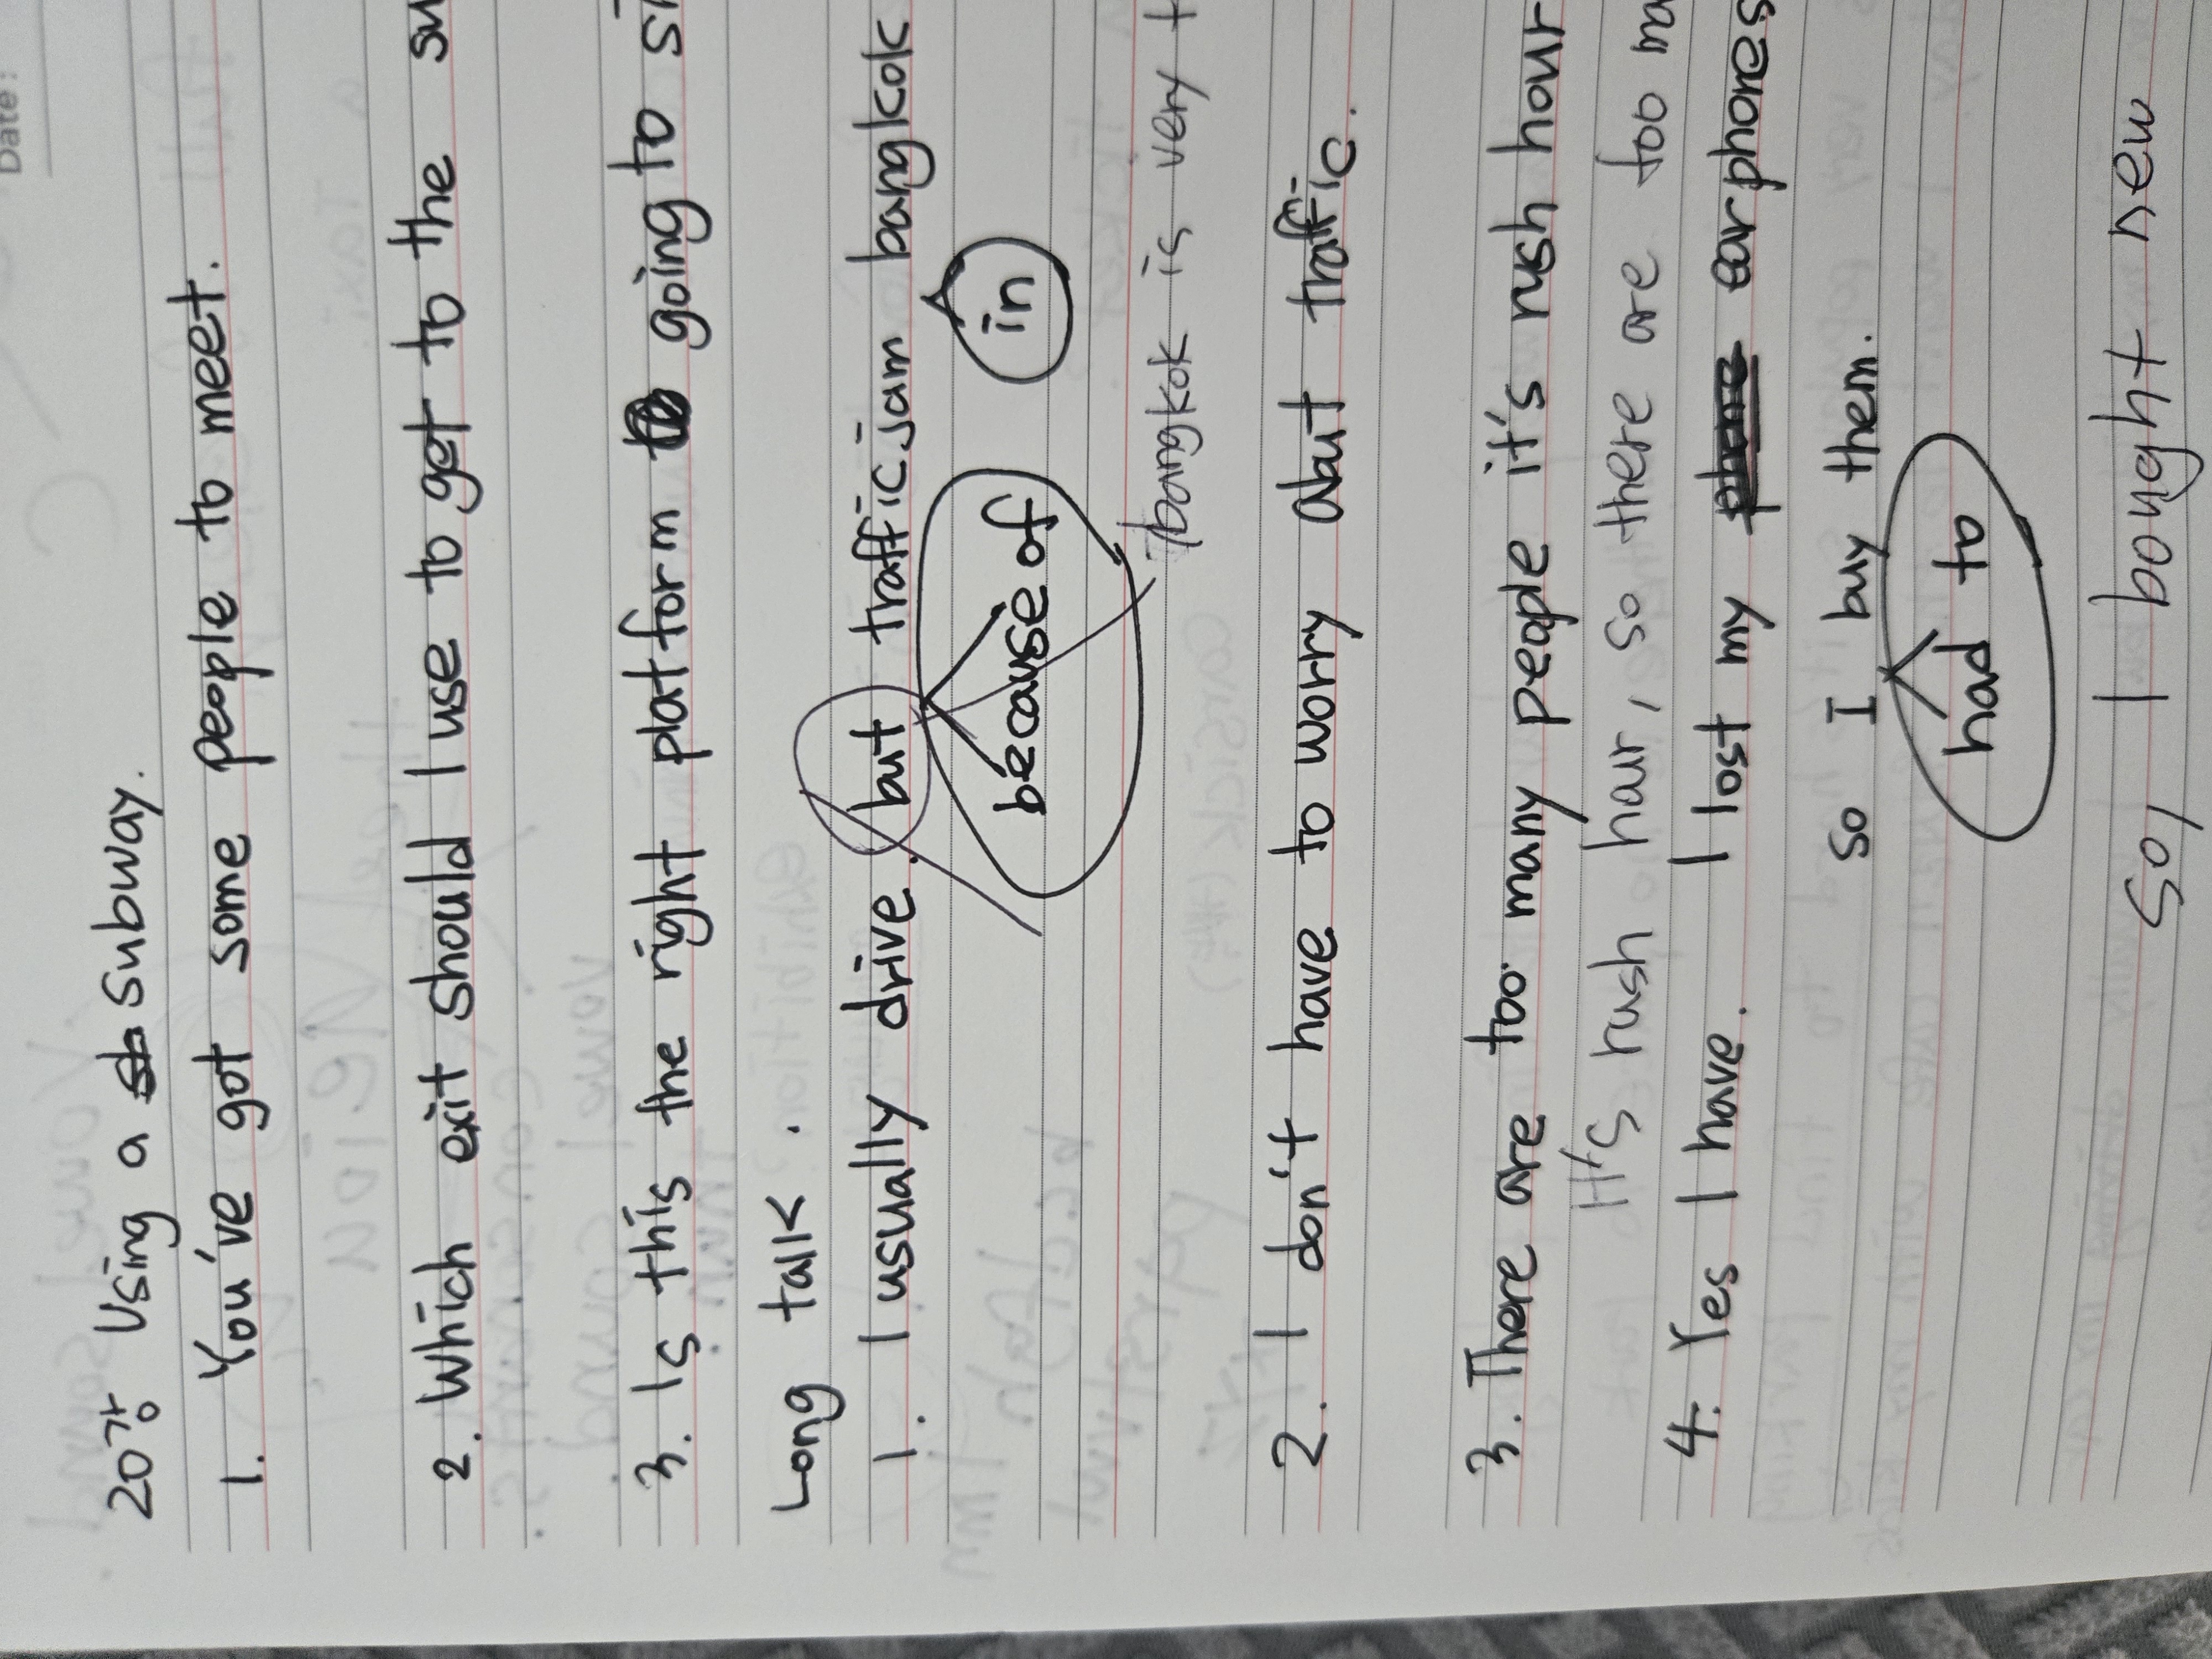 Date:
20강 Using a subway.
1. You've got some people to meet.
2. Which exit should I use to get to the
3. Is this the right platform going to
Long talk.
1. I usually drive. but traffic jam bangkok
because of
in
bangkok is very
2. I don't have to worry about traffic.
3. There are too many people it's rush hour
It's rush hour, so there are too
4. Yes I have. I lost my earphones
so I buy them.
had to
so, I bought new